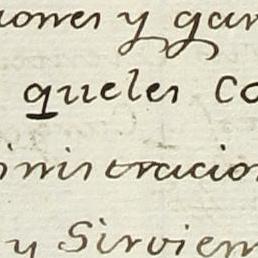 iones y gar
queles co
inistracion
y Sirvien